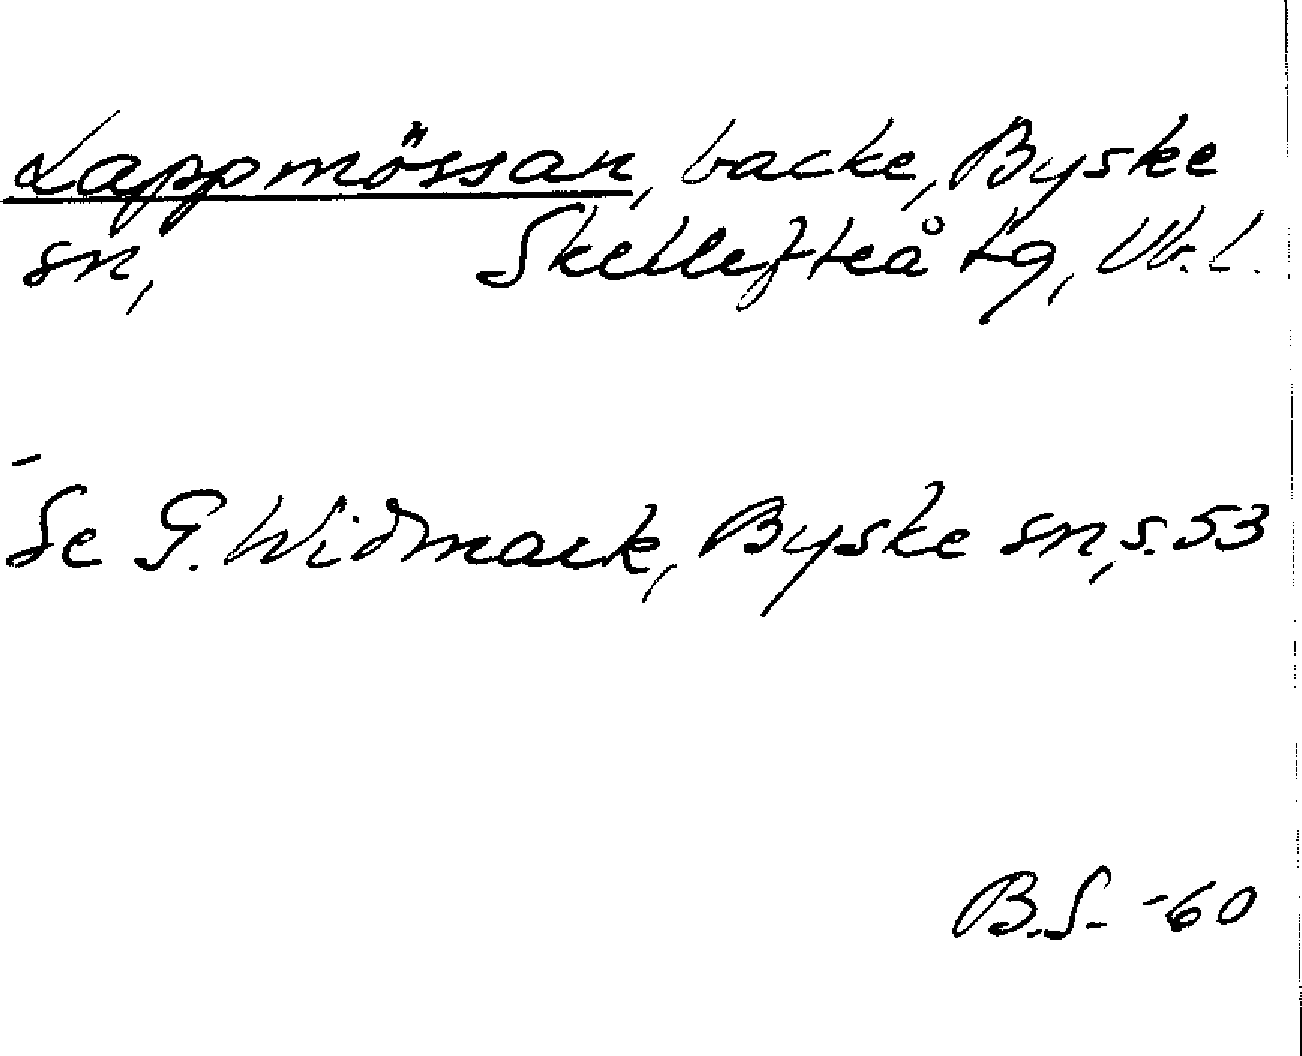 Lappmössan, backe, Byske
sn, Skellefteå tg, Vb. l.
-
Se G. Widmark, Byske sn, s. 53
B.S. -60